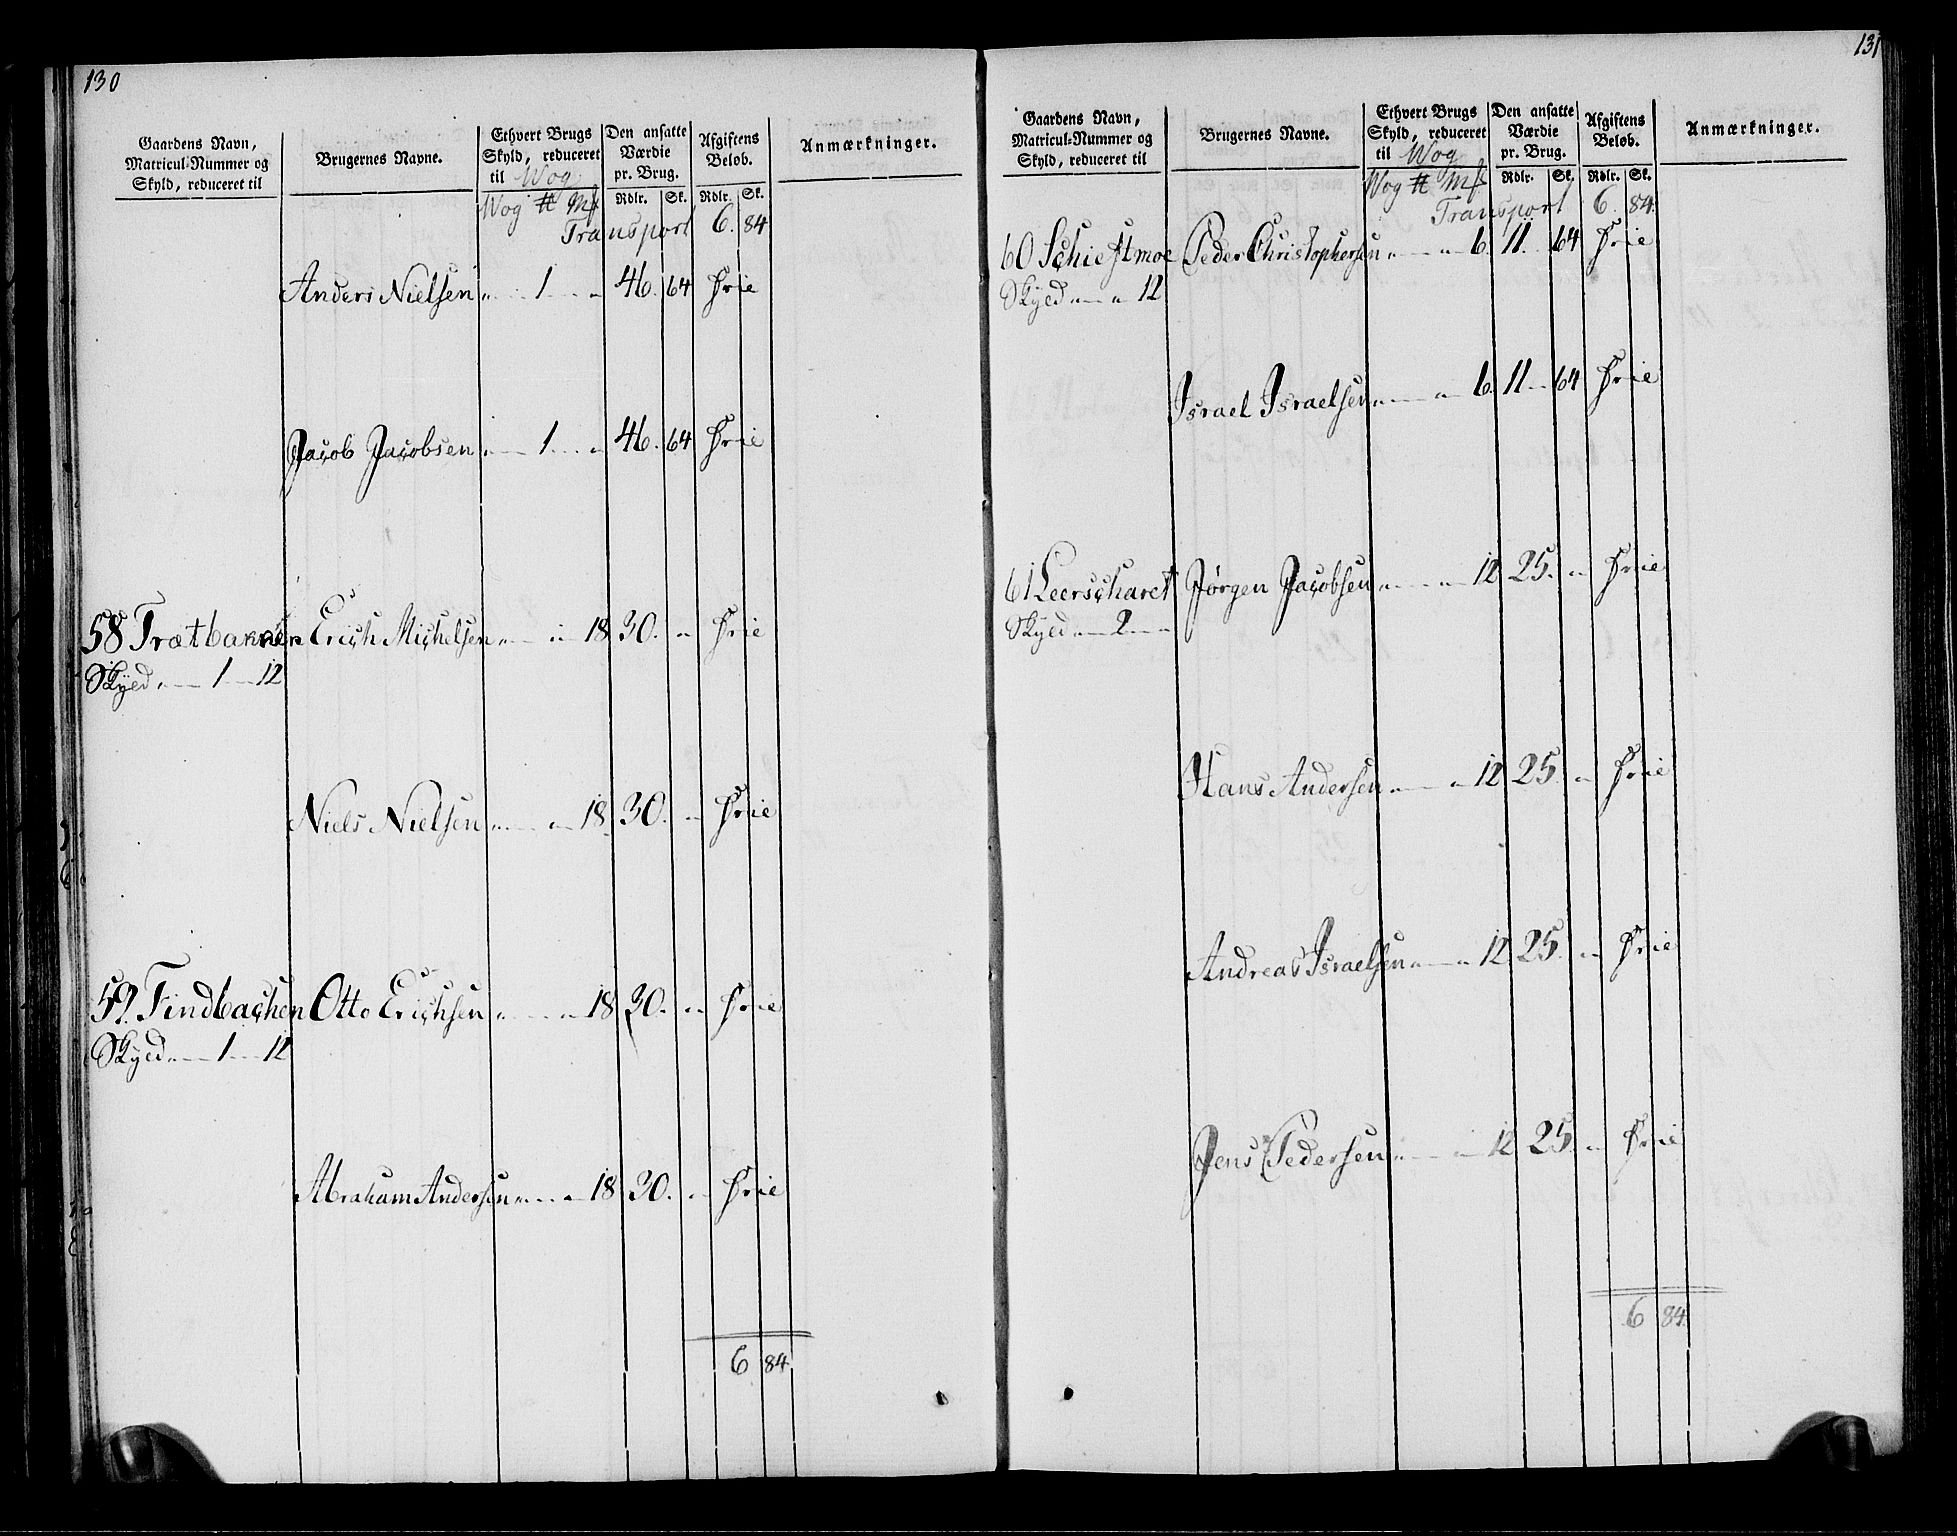 130
Gaardens Navn, Matricul-Nummer og Skyld, reduceret til
Brugernes Navne.
Ethvert Brugs Skyld, reduceret til Wog
Den ansatte Værdie pr. Brug.
Afgiftens Beløb.
Anmærkninger.
Wog ₶ Mk Rdlr. Sk. Rdlr. Sk.
Transport 6. 84
Anders Nielsen „ 1 „ 46. 64 Frie
Jacob Jacobsen „ 1 „ 46. 64 Frie
58 Trætbakken Erich Michelsen „ „ 18 30. „ Frie
Skyld „ 1 12
Niels Nielsen „ „ 18. 30. „ Frie
59. Findbachen Otto Erichsen „ „ 18 30. „ Frie
Skyld „ 1 12
Abraham Andersen „ „ 18 30. „ Frie
6 84
131
Gaardens Navn, Matricul-Nummer og Skyld, reduceret til
Brugernes Navne.
Ethvert Brugs Skyld, reduceret til Wog
Den ansatte Værdie pr. Brug.
Afgiftens Beløb.
Anmærkninger.
Wog ₶ Mk Rdlr. Sk. Rdlr. Sk.
Transport 6. 84.
60 Schiestmoe Peder Christophersen „ „ 6. 11. 64 Frie
Skyld „ „ 12
Israel Israelsen „ „ 6. 11 64 Frie
61 Leerscharet Jørgen Jacobsen „ „ 12 25. „ Frie
Skyld „ 2 „
Hans Andersen „ „ 12 25. „ Frie
Andreas Israelsen „ „ 12 25. „ Frie
Jens Pedersen „ „ 12 25. „ Frie
6 84.